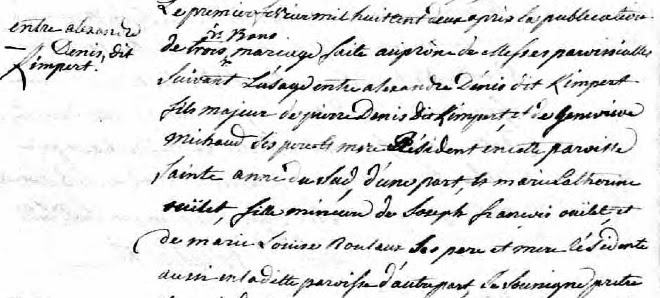 entre alexandre
Denis, dit
Kimpert.
Le premier février mil huit cent deux après la publication
de trois Bans mariage faite au prône de messes paroissialles
suivant L'usage entre alexandre Dénis dit Kimpert
fils majeur de pierre Denis dit Kimpert, et de Genevieve
Michaud ses pere et mere Résident en cete paroisse
sainte anne du Sud, d'une part, et marie Catherine
ouilet, fille mineure de Joseph françois ouilet, et
de marie Louise Rouleau, ses pere et mere résidente
aussi en la ditte paroisse d'autre part, je Soussigné prêtre